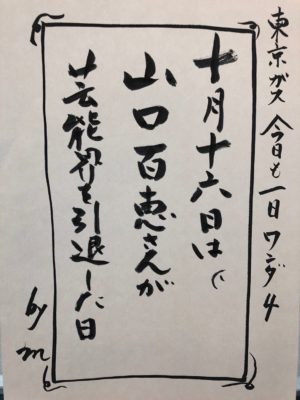 東京ガス 今日も一日ワンダ4
十月十六日は
山口百恵さんが
芸能界を引退した日
by m